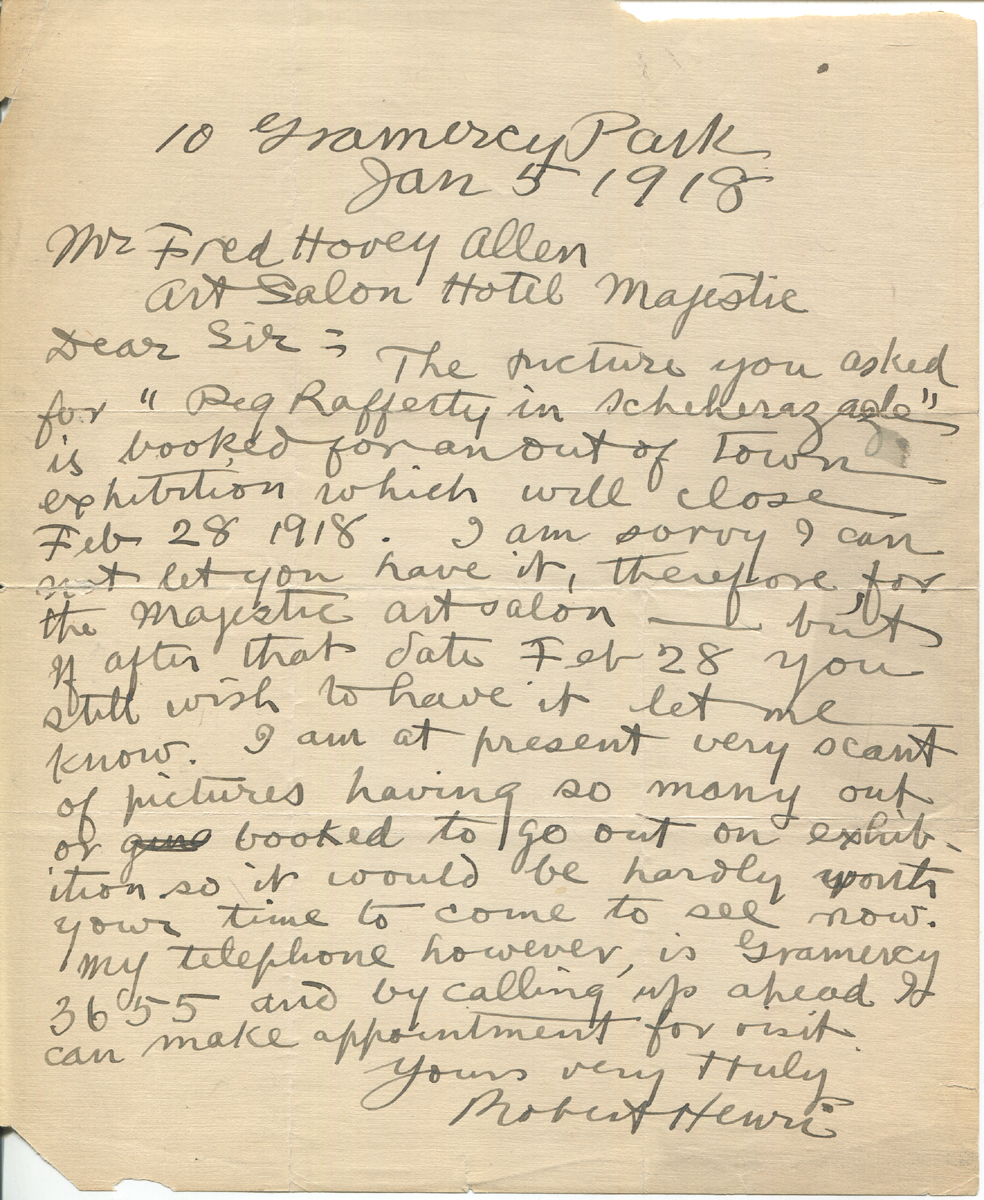 10 Gramercy Park
Jan 5 1918
Mr Fred Hovey Allen
Art Salon Hotel Majestic
Dear Sir = The picture you asked
for "Peg Rafferty in Scheherazade"
is booked for an out of town
exhibition which will close
Feb 28 1918. I am sorry I can
not let you have it, therefore, for
the Majestic art salon — but
if after that date Feb 28 you
still wish to have it let me
know. I am at present very scant
of pictures having so many out
or booked to go out on exhib-
ition so it would be hardly worth
your time to come to see now.
My telephone however, is Gramercy
3655 and by calling up ahead I
can make appointment for visit.
Yours very truly
Robert Henri